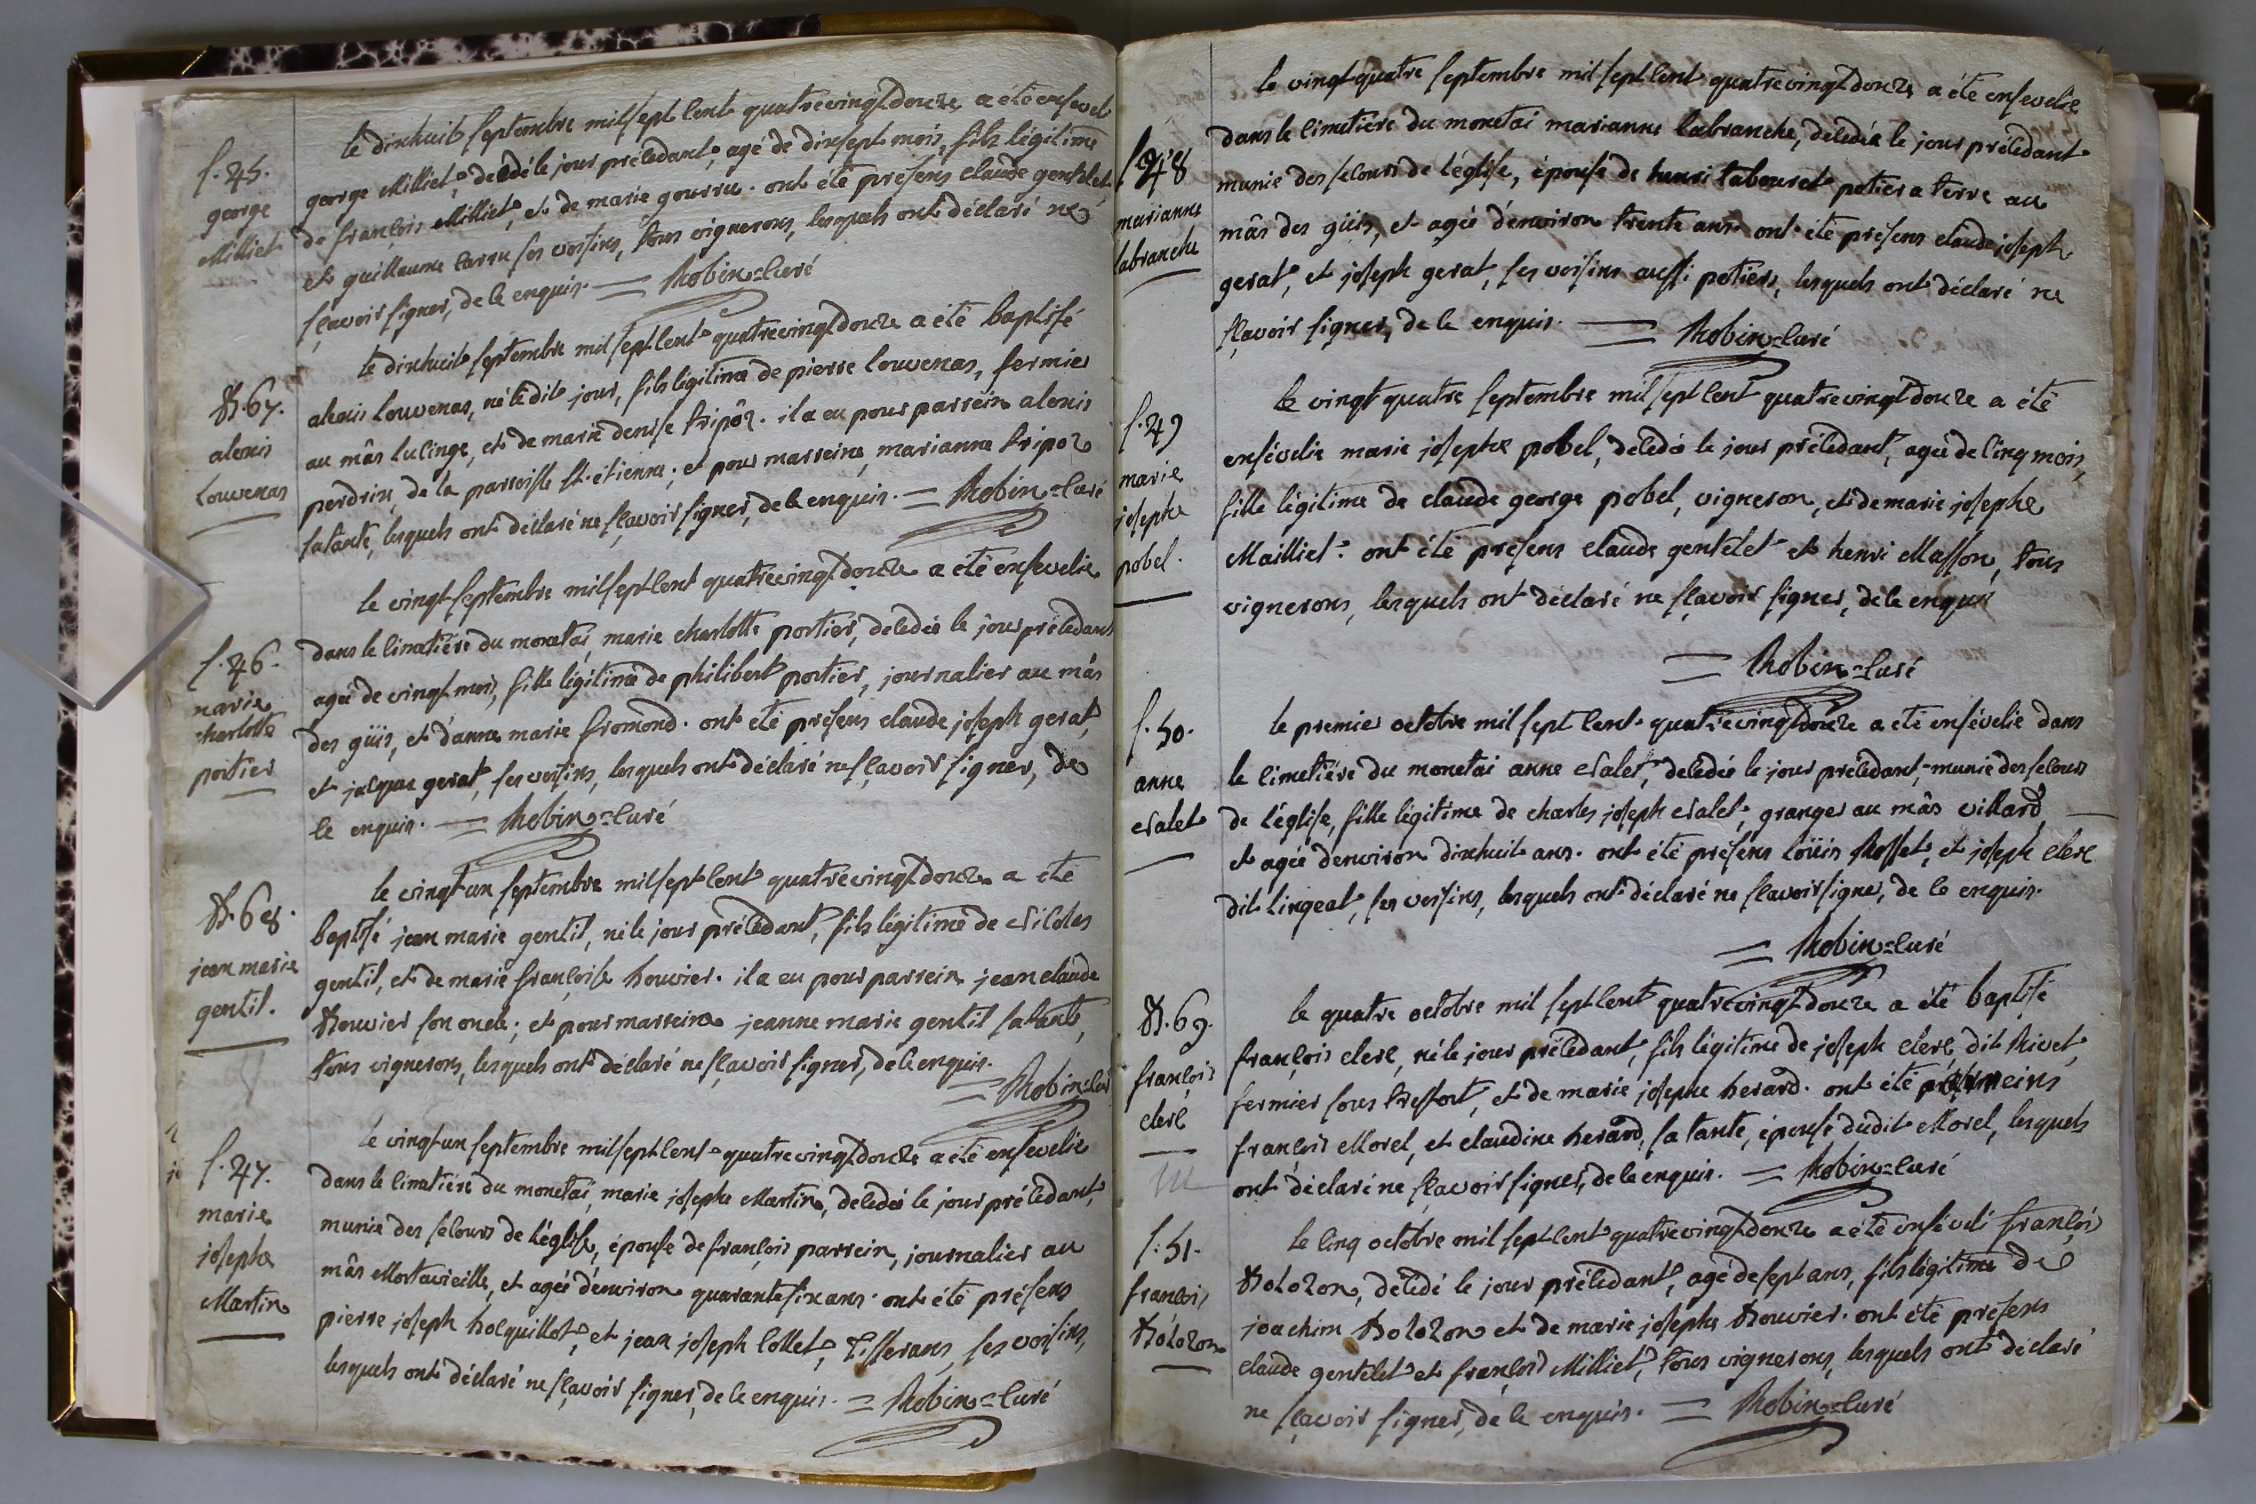 f. 45.
george
Milliet
le dixhuit septembre mil sept cent quatrevingtdouze a été enseveli
george Milliet, decedé le jour précédant, agé de dixsept mois, fils légitime
de françois Milliet, et de marie gourru. ont été présens claude gentelet
et guillaume carru ses voisins, tous vignerons, lesquels ont déclaré ne
sçavoir signer, de ce enquis. = Robin=curé
B. 67.
alexis
Louvenas
le dixhuit septembre mil sept cent quatrevingtdouze a été baptisé
alexis Louvenas, né ledit jour, fils légitime de pierre Louvenas, fermier
au mâs lulinge, et de marie denise tripôz. il a eu pour parrein alexis
perdrix, de la parroisse St. étienne; et pour marreine, marianne tripoz
sa tante, lesquels ont déclaré ne sçavoir signer, de ce enquis. = Robin=curé
f. 46.
marie
charlotte
portier
le vingt septembre mil sept cent quatrevingtdouze a été ensevelie
dans le cimetiére du monetai, marie charlotte portier, decedée le jour précédant
agée de vingt mois, fille légitime de philibert portier, journalier au mâs
des güis, et d'anne marie fromond. ont été présens claude joseph gerat,
et jacque gerat, ses voisins, lesquels ont déclaré ne sçavoir signer, de
ce enquis. = Robin=curé
B. 68.
jean marie
gentil.
le vingt un septembre mil sept cent quatrevingtdouze a été
baptisé jean marie gentil, né le jour précédant, fils légitime de Nicolas
gentil, et de marie françoise bouvier. il a eu pour parrein jean claude
Bouvier son oncle; et pour marreine jeanne marie gentil sa tante,
tous vignerons, lesquels ont déclaré ne sçavoir signer, de ce enquis.
= Robin=curé
f. 47.
marie
josephe
Martin
le vingt un septembre mil sept cent quatrevingtdouze a été ensevelie
dans le cimetiére du monetai, marie josephe Martin, decedée le jour précédant,
munie des secours de l'église, épouse de françois parrein, journalier au
mâs Mortavieille, et agée d'environ quarante six ans. ont été présens
pierre joseph bocquillot, et jean joseph Collet, Tisserans, ses voisins,
lesquels ont déclaré ne sçavoir signer, de ce enquis. = Robin=curé
f. 48
marianne
labranche
le vingt quatre septembre mil sept cent quatrevingtdouze a été ensevelie
dans le cimetiére du monetai marianne labranche, decedée le jour précédant
munie des secours de l'église, épouse de henri tabouret potier a terre au
mâs des güis, et agée d'environ trente ans. ont été présens claude joseph
gerat, et joseph gerat, ses voisins aussi potiers, lesquels ont déclaré ne
sçavoir signer, de ce enquis. = Robin=curé
f. 49
marie
josephe
pobel.
le vingt quatre septembre mil sept cent quatrevingtdouze a été
ensévelie marie josephe pobel, decedée le jour précédant, agée de cinq mois,
fille légitime de claude george pobel, vigneron, et de marie josephe
Mailliet. ont été présens claude gentelet et henri Masson, tous
vignerons, lesquels ont déclaré ne sçavoir signer, de ce enquis
= Robin=curé
f. 50.
anne
Nalet
le premier octobre mil sept cent quatrevingtdouze a été ensévelie dans
le cimetiére du monetai anne Nalet, decedée le jour précédant, munie des secours
de l'église, fille légitime de charles joseph Nalet, granger au mâs villard,
et agée d'environ dixhuit ans. ont été présens loüis Rosset, et joseph clerc
dit lingeat, ses voisins, lesquels ont déclaré ne sçavoir signer, de ce enquis.
= Robin=curé
B. 69.
françois
clerc
le quatre octobre mil sept cent quatrevingtdouze a été baptisé
françois clerc, né le jour précédant, fils légitime de joseph clerc, dit Rivet,
fermier sous tressort, et de marie josephe herard. ont été parreins
françois Morel, et claudine herard, sa tante, épouse dudit Morel, lesquels
ont déclaré ne sçavoir signer, de ce enquis. = Robin=curé
f. 51.
françois
Bolozon
le cinq octobre mil sept cent quatrevingtdouze a été enséveli françois
Bolozon, décédé le jour précédant, agé de sept ans, fils légitime de
joachim Bolozon et de marie josephe Bouvier. ont été présens
claude gentelet et françois Milliet, tous vignerons, lesquels ont déclaré
ne sçavoir signer, de ce enquis. = Robin=curé